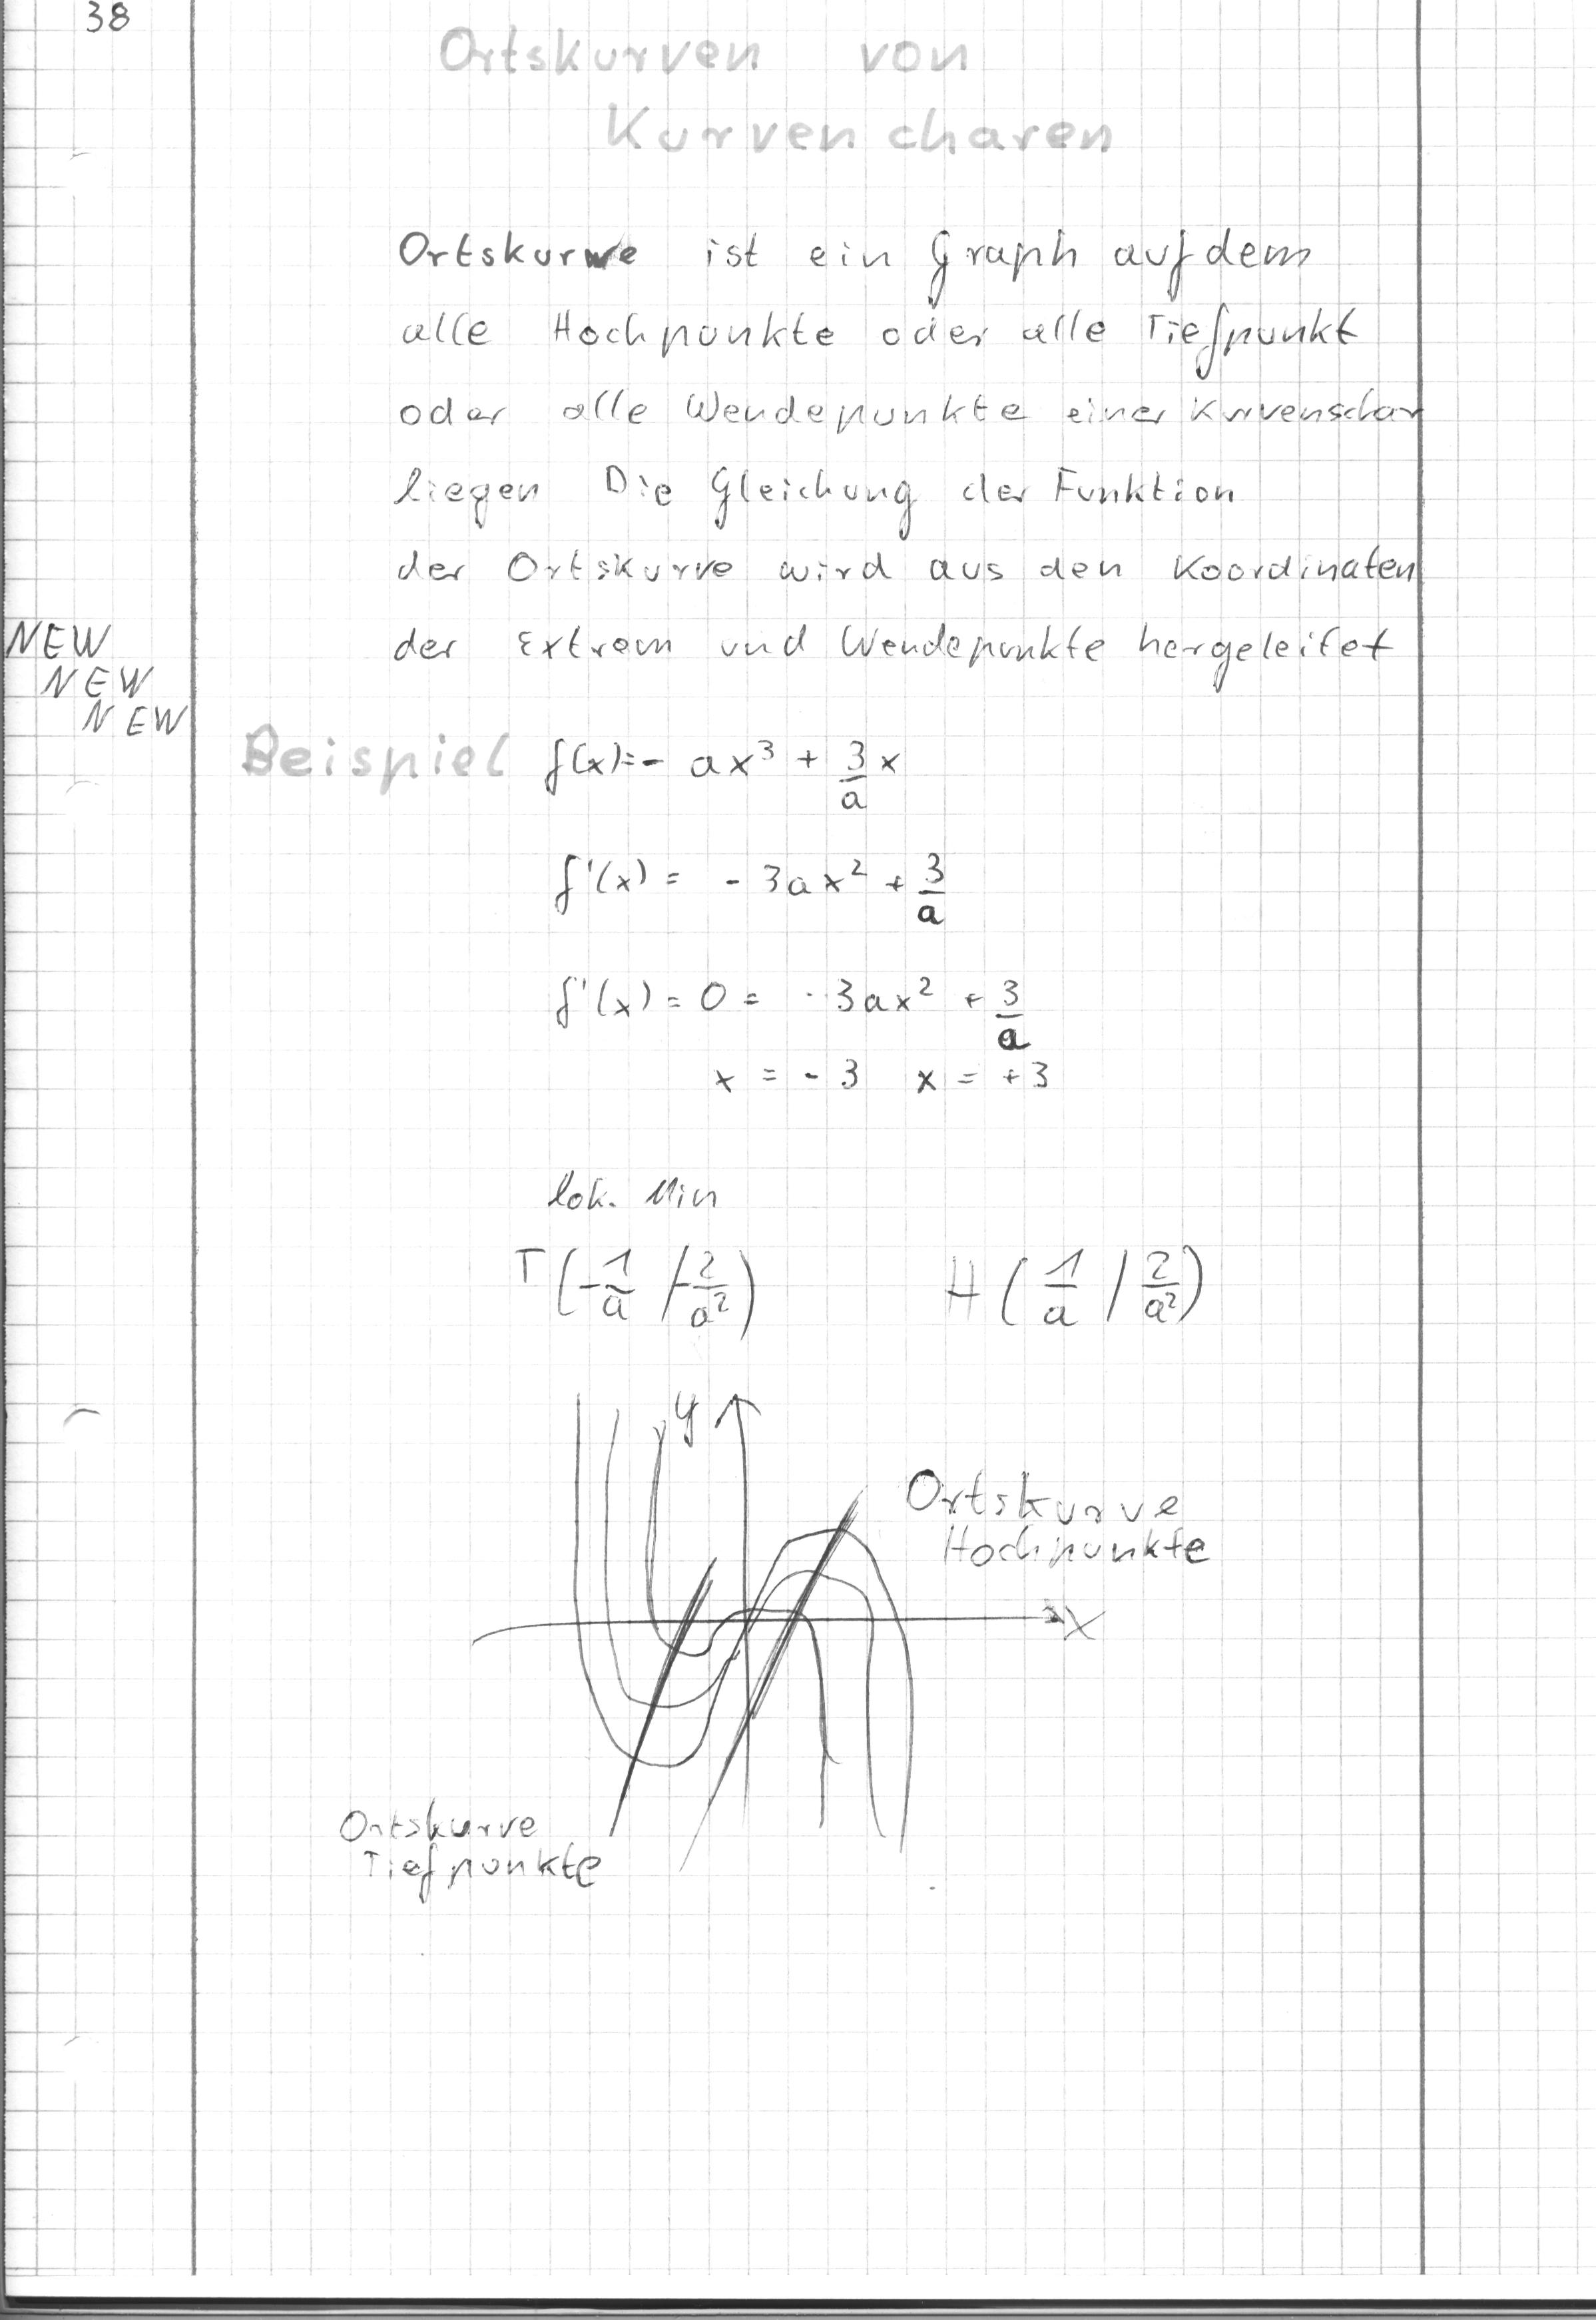 38
Ortskurven von
Kurvencharen
Ortskurve ist ein Graph auf dem
alle Hochpunkte oder alle Tiefpunkt
oder alle Wendepunkte einer Kurvenschar
liegen Die Gleichung der Funktion
der Ortskurve wird aus den Koordinaten
der Extrem und Wendepunkte hergeleitet
NEW
NEW
NEW
Beispiel f(x)=- ax³ + 3/a x
f'(x) = - 3ax² + 3/a
f'(x) = 0 = - 3ax² + 3/a
x = - 3 x = + 3
lok. Min
T (-1/a / -2/a²) H (1/a / 2/a²)
y
Ortskurve
Hochpunkte
x
Ortskurve
Tiefpunkte